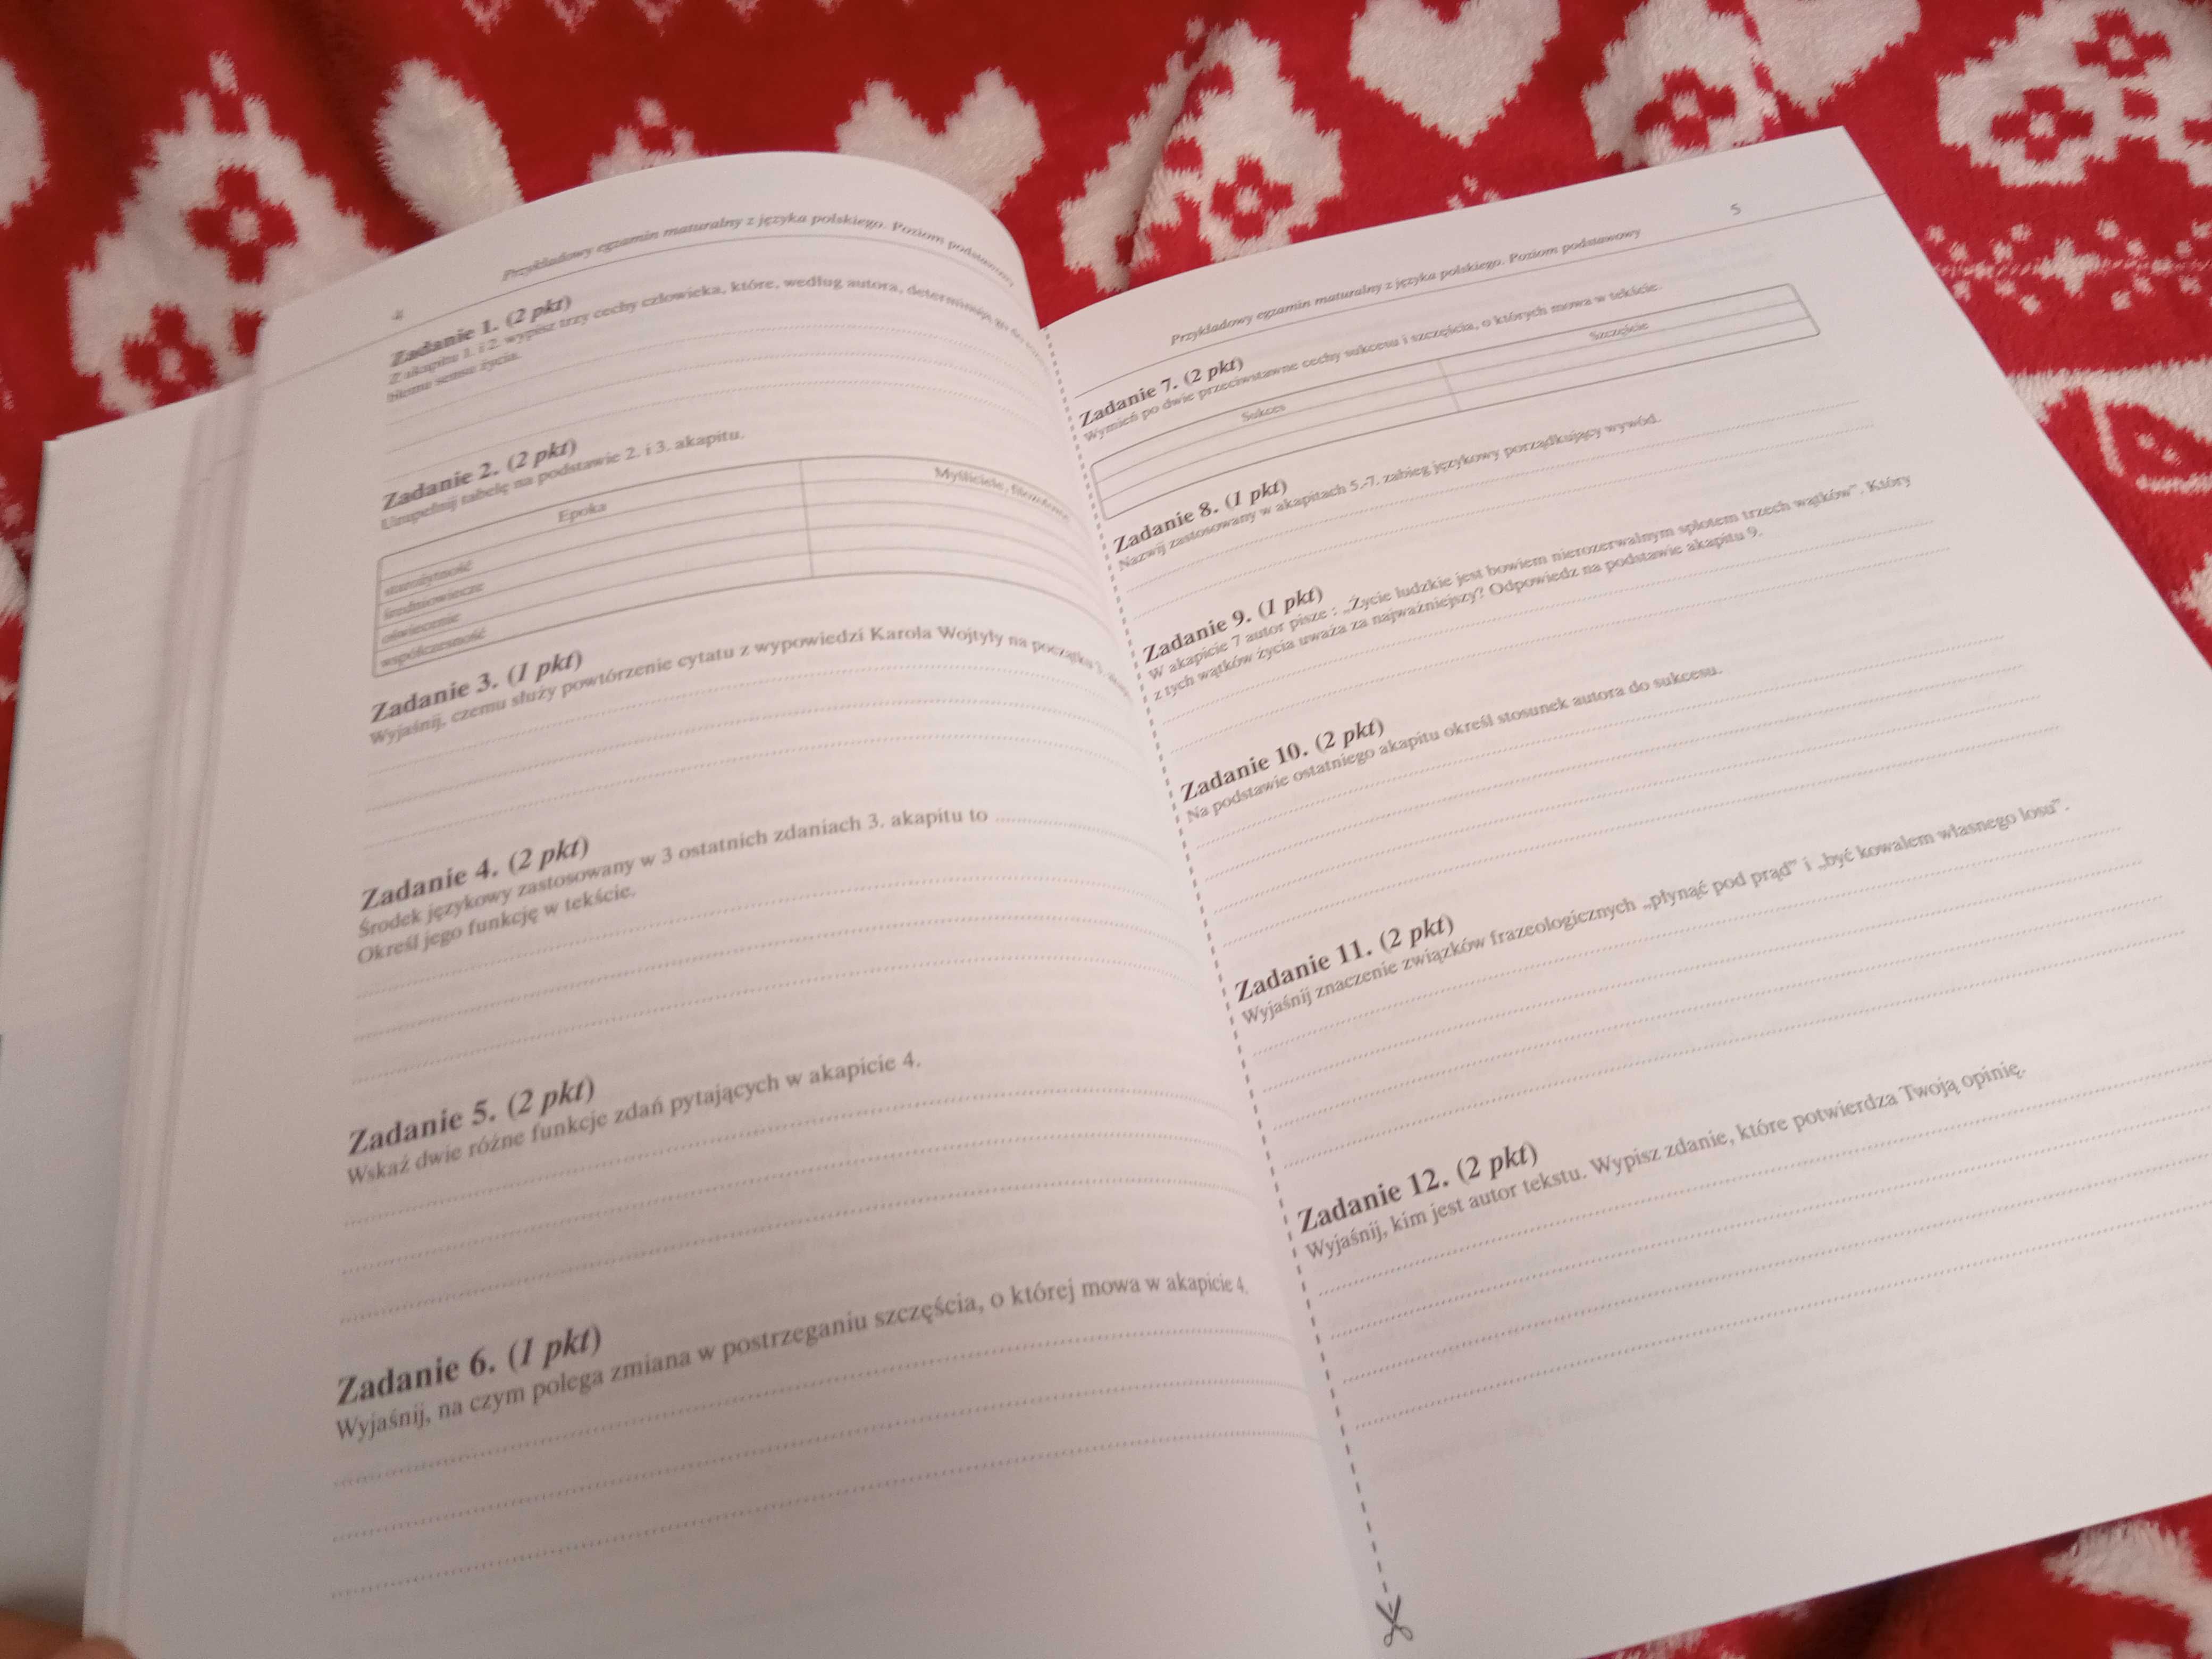 4
Przykładowy egzamin maturalny z języka polskiego. Poziom podstawowy
Zadanie 1. (2 pkt)
Z akapitu 1. i 2. wypisz trzy cechy człowieka, które, według autora, determinują go do
sensu życia.
Zadanie 2. (2 pkt)
Uzupełnij tabelę na podstawie 2. i 3. akapitu.
Epoka
Myśliciele, filozofowie
starożytność
średniowiecze
oświecenie
współczesność
Zadanie 3. (1 pkt)
Wyjaśnij, czemu służy powtórzenie cytatu z wypowiedzi Karola Wojtyły na początku
Zadanie 4. (2 pkt)
Środek językowy zastosowany w 3 ostatnich zdaniach 3. akapitu to
Określ jego funkcję w tekście.
Zadanie 5. (2 pkt)
Wskaż dwie różne funkcje zdań pytających w akapicie 4.
Zadanie 6. (1 pkt)
Wyjaśnij, na czym polega zmiana w postrzeganiu szczęścia, o której mowa w akapicie 4.
Przykładowy egzamin maturalny z języka polskiego. Poziom podstawowy
5
Zadanie 7. (2 pkt)
Wymień po dwie przeciwstawne cechy sukcesu i szczęścia, o których mowa w tekście.
Sukces
Szczęście
Zadanie 8. (1 pkt)
Nazwij zastosowany w akapitach 5.-7. zabieg językowy porządkujący wywód.
Zadanie 9. (1 pkt)
W akapicie 7 autor pisze : „Życie ludzkie jest bowiem nierozerwalnym splotem trzech wątków”. Który
z tych wątków życia uważa za najważniejszy? Odpowiedz na podstawie akapitu 9.
Zadanie 10. (2 pkt)
Na podstawie ostatniego akapitu określ stosunek autora do sukcesu.
Zadanie 11. (2 pkt)
Wyjaśnij znaczenie związków frazeologicznych „płynąć pod prąd” i „być kowalem własnego losu”.
Zadanie 12. (2 pkt)
Wyjaśnij, kim jest autor tekstu. Wypisz zdanie, które potwierdza Twoją opinię.